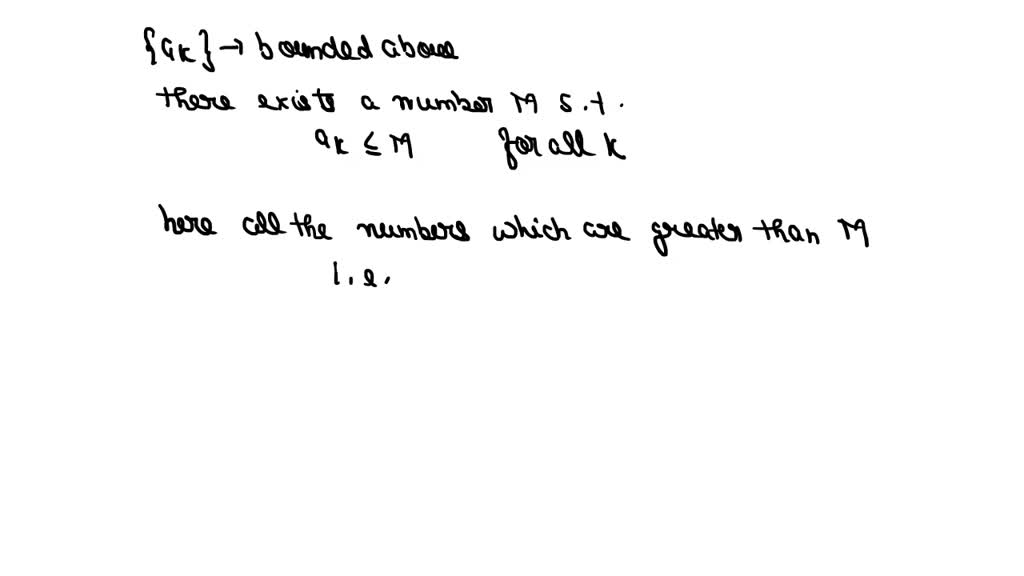 {aK} → bounded above
there exists a number M s.t.
aK ≤ M for all K
here all the numbers which are greater than M
i.e.